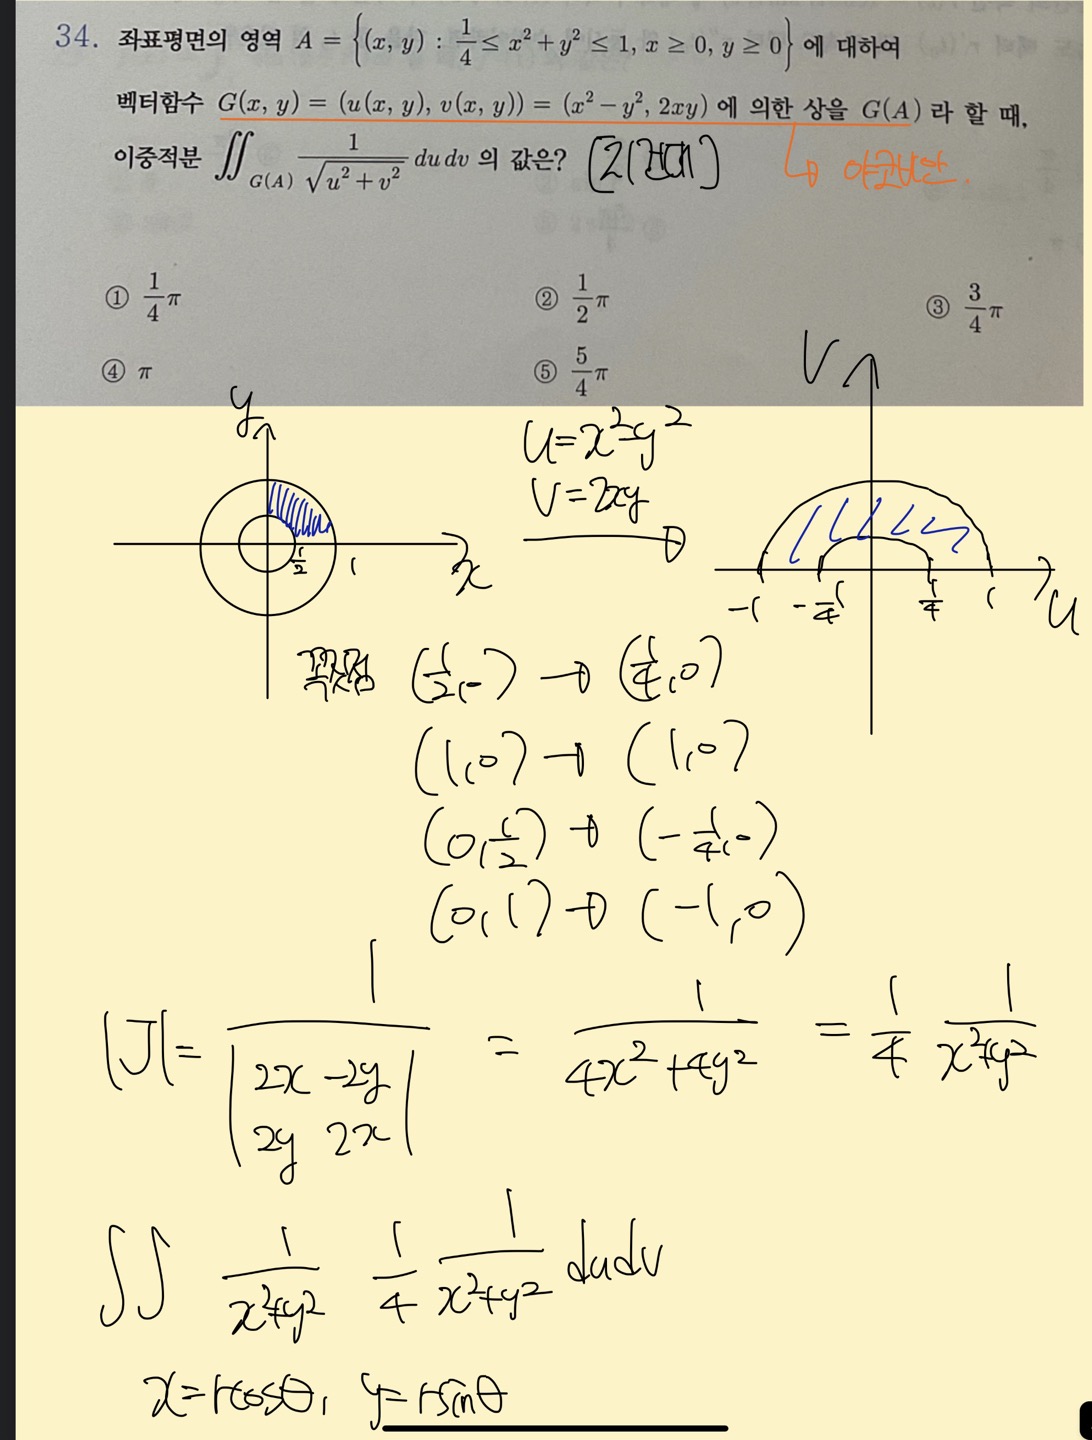 34. 좌표평면의 영역 A = {(x, y) : 1/4 ≤ x² + y² ≤ 1, x ≥ 0, y ≥ 0} 에 대하여
벡터함수 G(x, y) = (u(x, y), v(x, y)) = (x² − y², 2xy) 에 의한 상을 G(A) 라 할 때,
이중적분 ∬_{G(A)} 1/√(u² + v²) du dv 의 값은? [21건대]
↳ 야코비안.
① 1/4 π ② 1/2 π ③ 3/4 π
④ π ⑤ 5/4 π
y
x
1/2 1
u=x²-y²
v=2xy
V
u
-1 -1/4 1/4 1
꼭짓점 (1/2, 0) → (1/4, 0)
(1, 0) → (1, 0)
(0, 1/2) → (-1/4, 0)
(0, 1) → (-1, 0)
|J| = 1/|2x -2y 2y 2x| = 1/(4x²+4y²) = 1/4 1/(x²+y²)
∬ 1/(x²+y²) 1/4 1/(x²+y²) dudv
x=rcosθ, y=rsinθ